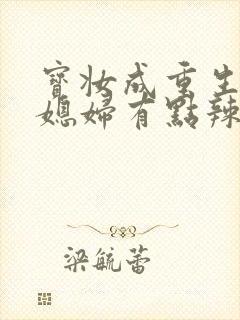 寶妝成重生
媳婦有點辣
梁毓蕾